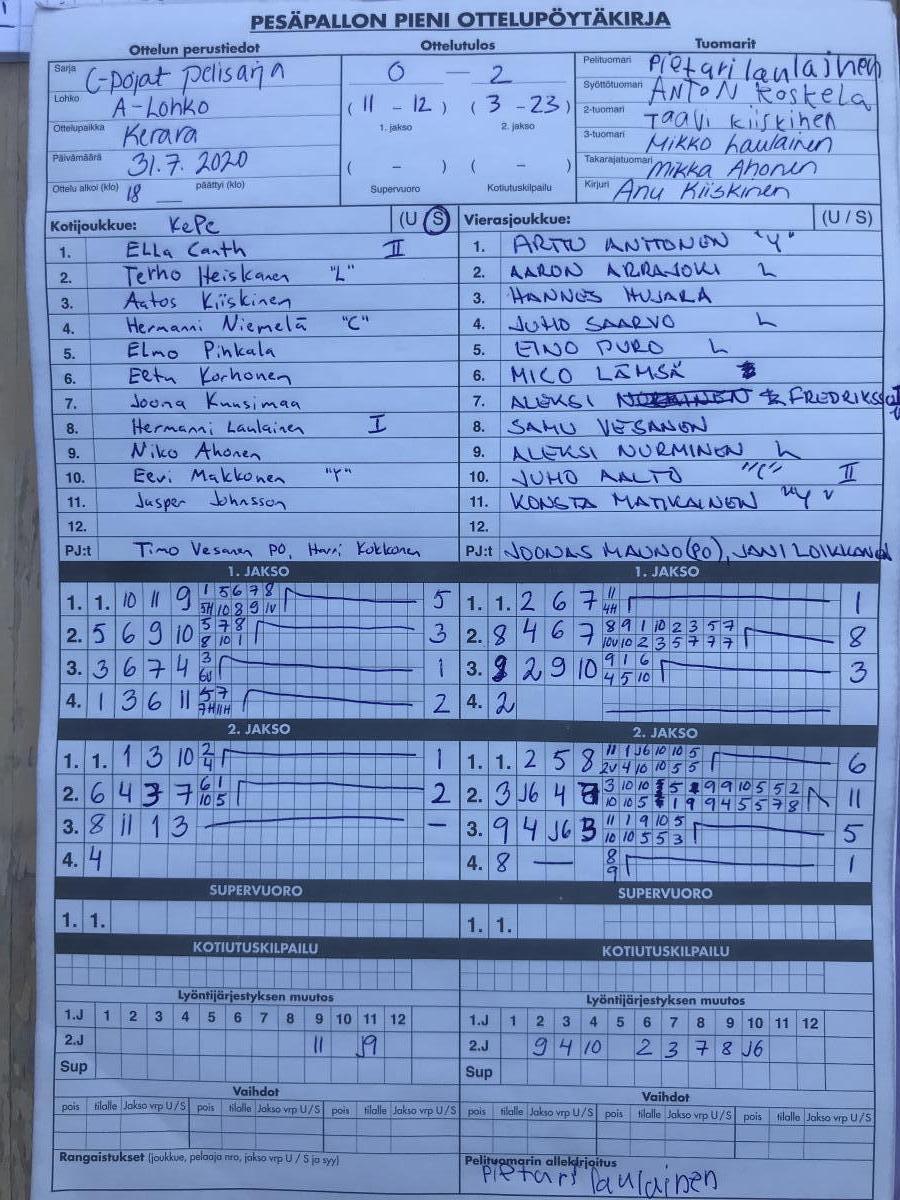 PESÄPALLON PIENI OTTELUPÖYTÄKIRJA
Ottelun perustiedot
Sarja C-pojat pelisarja
Lohko A-Lohko
Ottelupaikka Kerava
Päivämäärä 31.7.2020
Ottelu alkoi (klo) 18 päättyi (klo)
Ottelutulos
0 — 2
(11 - 12) (3 - 23)
1. jakso 2. jakso
( - ) ( - )
Supervuoro Kotiutuskilpailu
Tuomarit
Pelituomari Pietari laulainen
Syöttötuomari ANTON KOSKELA
2-tuomari Taavi Kiiskinen
3-tuomari Mikko Laulainen
Takarajatuomari Mikka Ahonen
Kirjuri Anu Kiiskinen
Kotijoukkue: KePe (U S)
1. Ella Canth II
2. Terho Heiskanen "L"
3. Aatos Kiiskinen
4. Hermanni Niemelä "C"
5. Elmo Pihkala
6. Eetu Korhonen
7. Joona Kuusimaa
8. Hermanni Laulainen I
9. Niko Ahonen
10. Eevi Makkonen "Y"
11. Jasper Johnsson
12.
PJ:t Timo Vesanen PO, Harri Kokkonen
Vierasjoukkue: (U / S)
1. ARTTU ANTTONEN "Y"
2. AARON ARRAJOKI L
3. HANNES HUJARA
4. JUHO SAARVO L
5. EINO PURO L
6. MICO LÄMSÄ
7. ALEKSI FREDRIKSSON
8. SAMU VESANEN
9. ALEKSI NURMINEN L
10. JUHO AALTO "C" II
11. KONSTA MATIKAINEN "Y"
12.
PJ:t JOONAS MAUNO (PO), JANI LOIKKANEN
1. JAKSO
1. 1. 10 11 9 1 5 6 7 8 5
5H 10 8 9 1V
2. 5 6 9 10 5 7 8 3
8 10 1
3. 3 6 7 4 3 1
6V
4. 1 3 6 11 5 7 2
7H 11H
2. JAKSO
1. 1. 1 3 10 2 1
4
2. 6 4 3 7 6 1 2
10 5
3. 8 11 1 3 —
4. 4
SUPERVUORO
1. 1.
KOTIUTUSKILPAILU
Lyöntijärjestyksen muutos
1.J 1 2 3 4 5 6 7 8 9 10 11 12
2.J 11 J9
Sup
Vaihdot
pois tilalle Jakso vrp U / S pois tilalle Jakso vrp U / S pois tilalle Jakso vrp U / S
Rangaistukset (joukkue, pelaaja nro, jakso vrp U / S ja syy)
1. JAKSO
1. 1. 2 6 7 11 1
4H
2. 8 4 6 7 8 9 1 10 2 3 5 7 8
10V 10 2 3 5 7 7 7
3. 2 9 10 9 1 6 3
4 5 10
4. 2
2. JAKSO
1. 1. 2 5 8 11 1 J6 10 10 5 6
2V 4 10 10 5 5
2. 3 J6 4 3 10 10 5 9 9 10 5 5 2 11
10 10 5 1 9 9 4 5 5 7 8
3. 9 4 J6 3 11 1 9 10 5 5
10 10 5 5 3
4. 8 — 8 1
9
SUPERVUORO
1. 1.
KOTIUTUSKILPAILU
Lyöntijärjestyksen muutos
1.J 1 2 3 4 5 6 7 8 9 10 11 12
2.J 9 4 10 2 3 7 8 J6
Sup
Vaihdot
pois tilalle Jakso vrp U / S pois tilalle Jakso vrp U / S pois tilalle Jakso vrp U / S
Pelituomarin allekirjoitus
Pietari laulainen